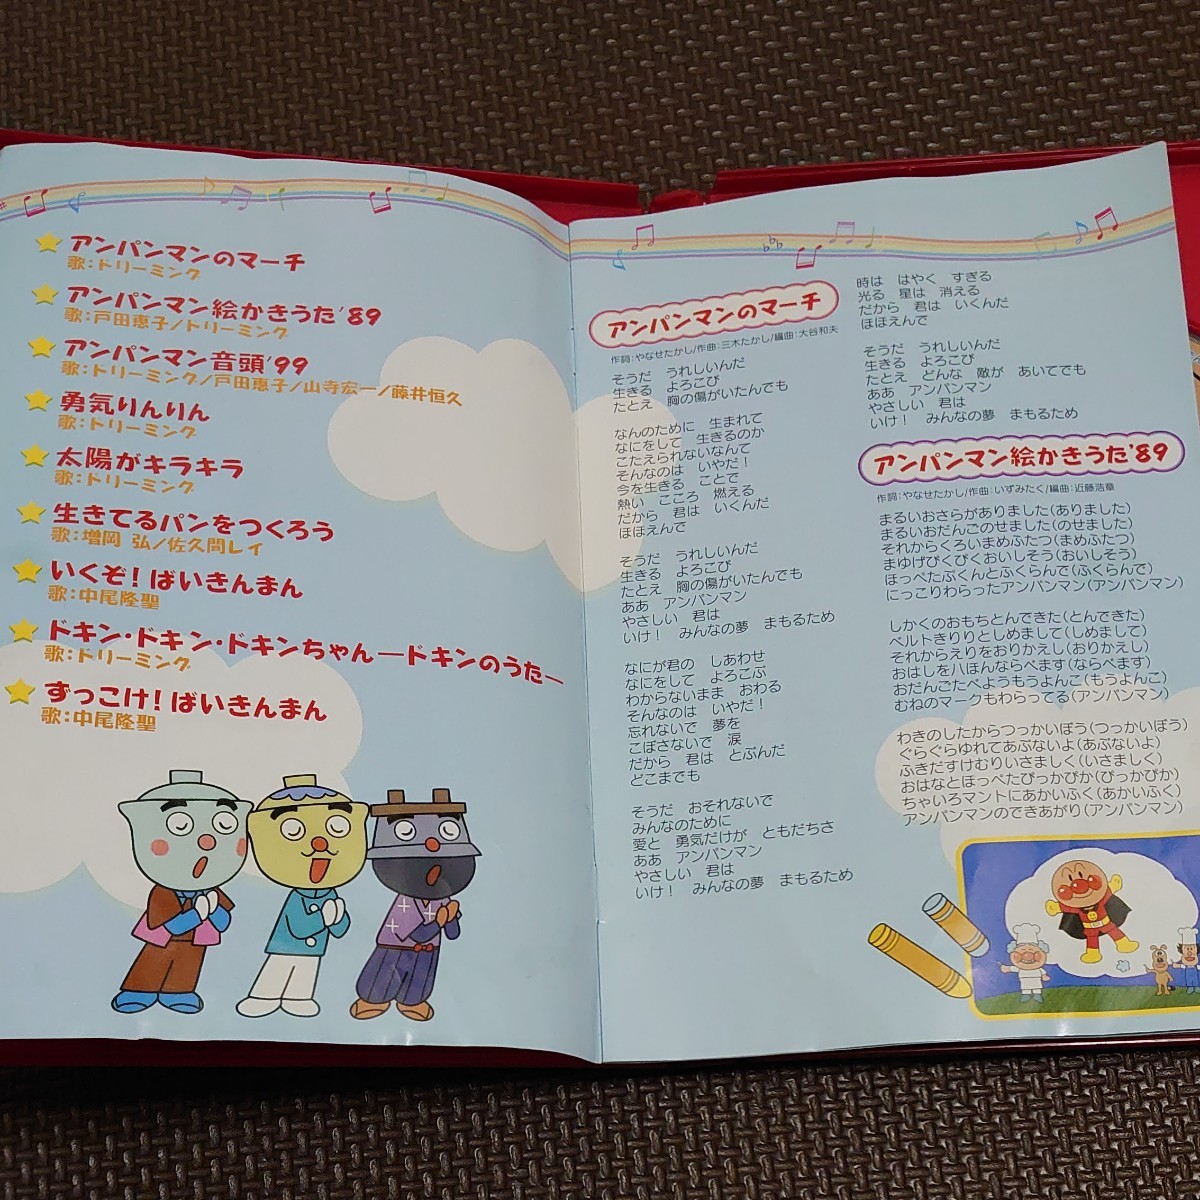 アンパンマンのマーチ
歌：ドリーミング
アンパンマン絵かきうた'89
歌：戸田恵子／ドリーミング
アンパンマン音頭'99
歌：ドリーミング／戸田恵子／山寺宏一／藤井恒久
勇気りんりん
歌：ドリーミング
太陽がキラキラ
歌：ドリーミング
生きてるパンをつくろう
歌：増岡 弘／佐久間レイ
いくぞ！ばいきんまん
歌：中尾隆聖
ドキン・ドキン・ドキンちゃん―ドキンのうた―
歌：ドリーミング
ずっこけ！ばいきんまん
歌：中尾隆聖
アンパンマンのマーチ
作詞：やなせたかし／作曲：三木たかし／編曲：大谷和夫
そうだ　うれしいんだ
生きる　よろこび
たとえ　胸の傷がいたんでも
なんのために　生まれて
なにをして　生きるのか
こたえられないなんて
そんなのは　いやだ！
今を生きる　ことで
熱い　こころ　燃える
だから　君は　いくんだ
ほほえんで
そうだ　うれしいんだ
生きる　よろこび
たとえ　胸の傷がいたんでも
ああ　アンパンマン
やさしい　君は
いけ！　みんなの夢　まもるため
なにが君の　しあわせ
なにをして　よろこぶ
わからないまま　おわる
そんなのは　いやだ！
忘れないで　夢を
こぼさないで　涙
だから　君は　とぶんだ
どこまでも
そうだ　おそれないで
みんなのために
愛と　勇気だけが　ともだちさ
ああ　アンパンマン
やさしい　君は
いけ！　みんなの夢　まもるため
時は　はやく　すぎる
光る　星は　消える
だから　君は　いくんだ
ほほえんで
そうだ　うれしいんだ
生きる　よろこび
たとえ　どんな　敵が　あいてでも
ああ　アンパンマン
やさしい　君は
いけ！　みんなの夢　まもるため
アンパンマン絵かきうた'89
作詞：やなせたかし／作曲：いずみたく／編曲：近藤浩章
まるいおさらがありました（ありました）
まるいおだんごのせました（のせました）
それからくろいまめふたつ（まめふたつ）
まゆげぴくぴくおいしそう（おいしそう）
ほっぺたぷくんとふくらんで（ふくらんで）
にっこりわらったアンパンマン（アンパンマン）
しかくのおもちとんできた（とんできた）
ベルトきりりとしめまして（しめまして）
それからえりをおりかえし（おりかえし）
おはしを八ほんならべます（ならべます）
おだんごたべようもうよんこ（もうよんこ）
むねのマークもわらってる（アンパンマン）
わきのしたからつっかいぼう（つっかいぼう）
ぐらぐらゆれてあぶないよ（あぶないよ）
ふきだすけむりいさましく（いさましく）
おはなとほっぺたぴっかぴか（ぴっかぴか）
ちゃいろマントにあかいふく（あかいふく）
アンパンマンのできあがり（アンパンマン）